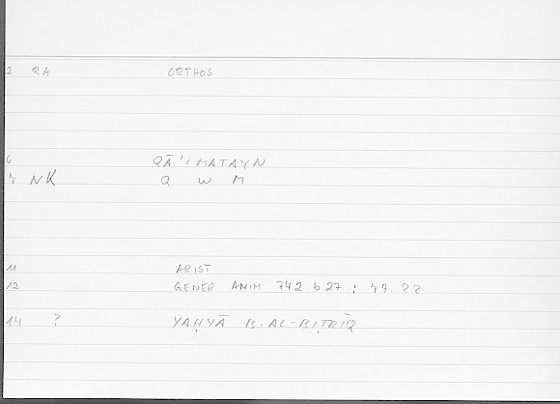 2 RA ORTHOS
6 QĀ'IMATAYN
7 NK Q W M
11 ARIST
12 GENER ANIM 742 b 27 : 79.22
14 ? YAḤYĀ B. AL-BIṬRĪQ